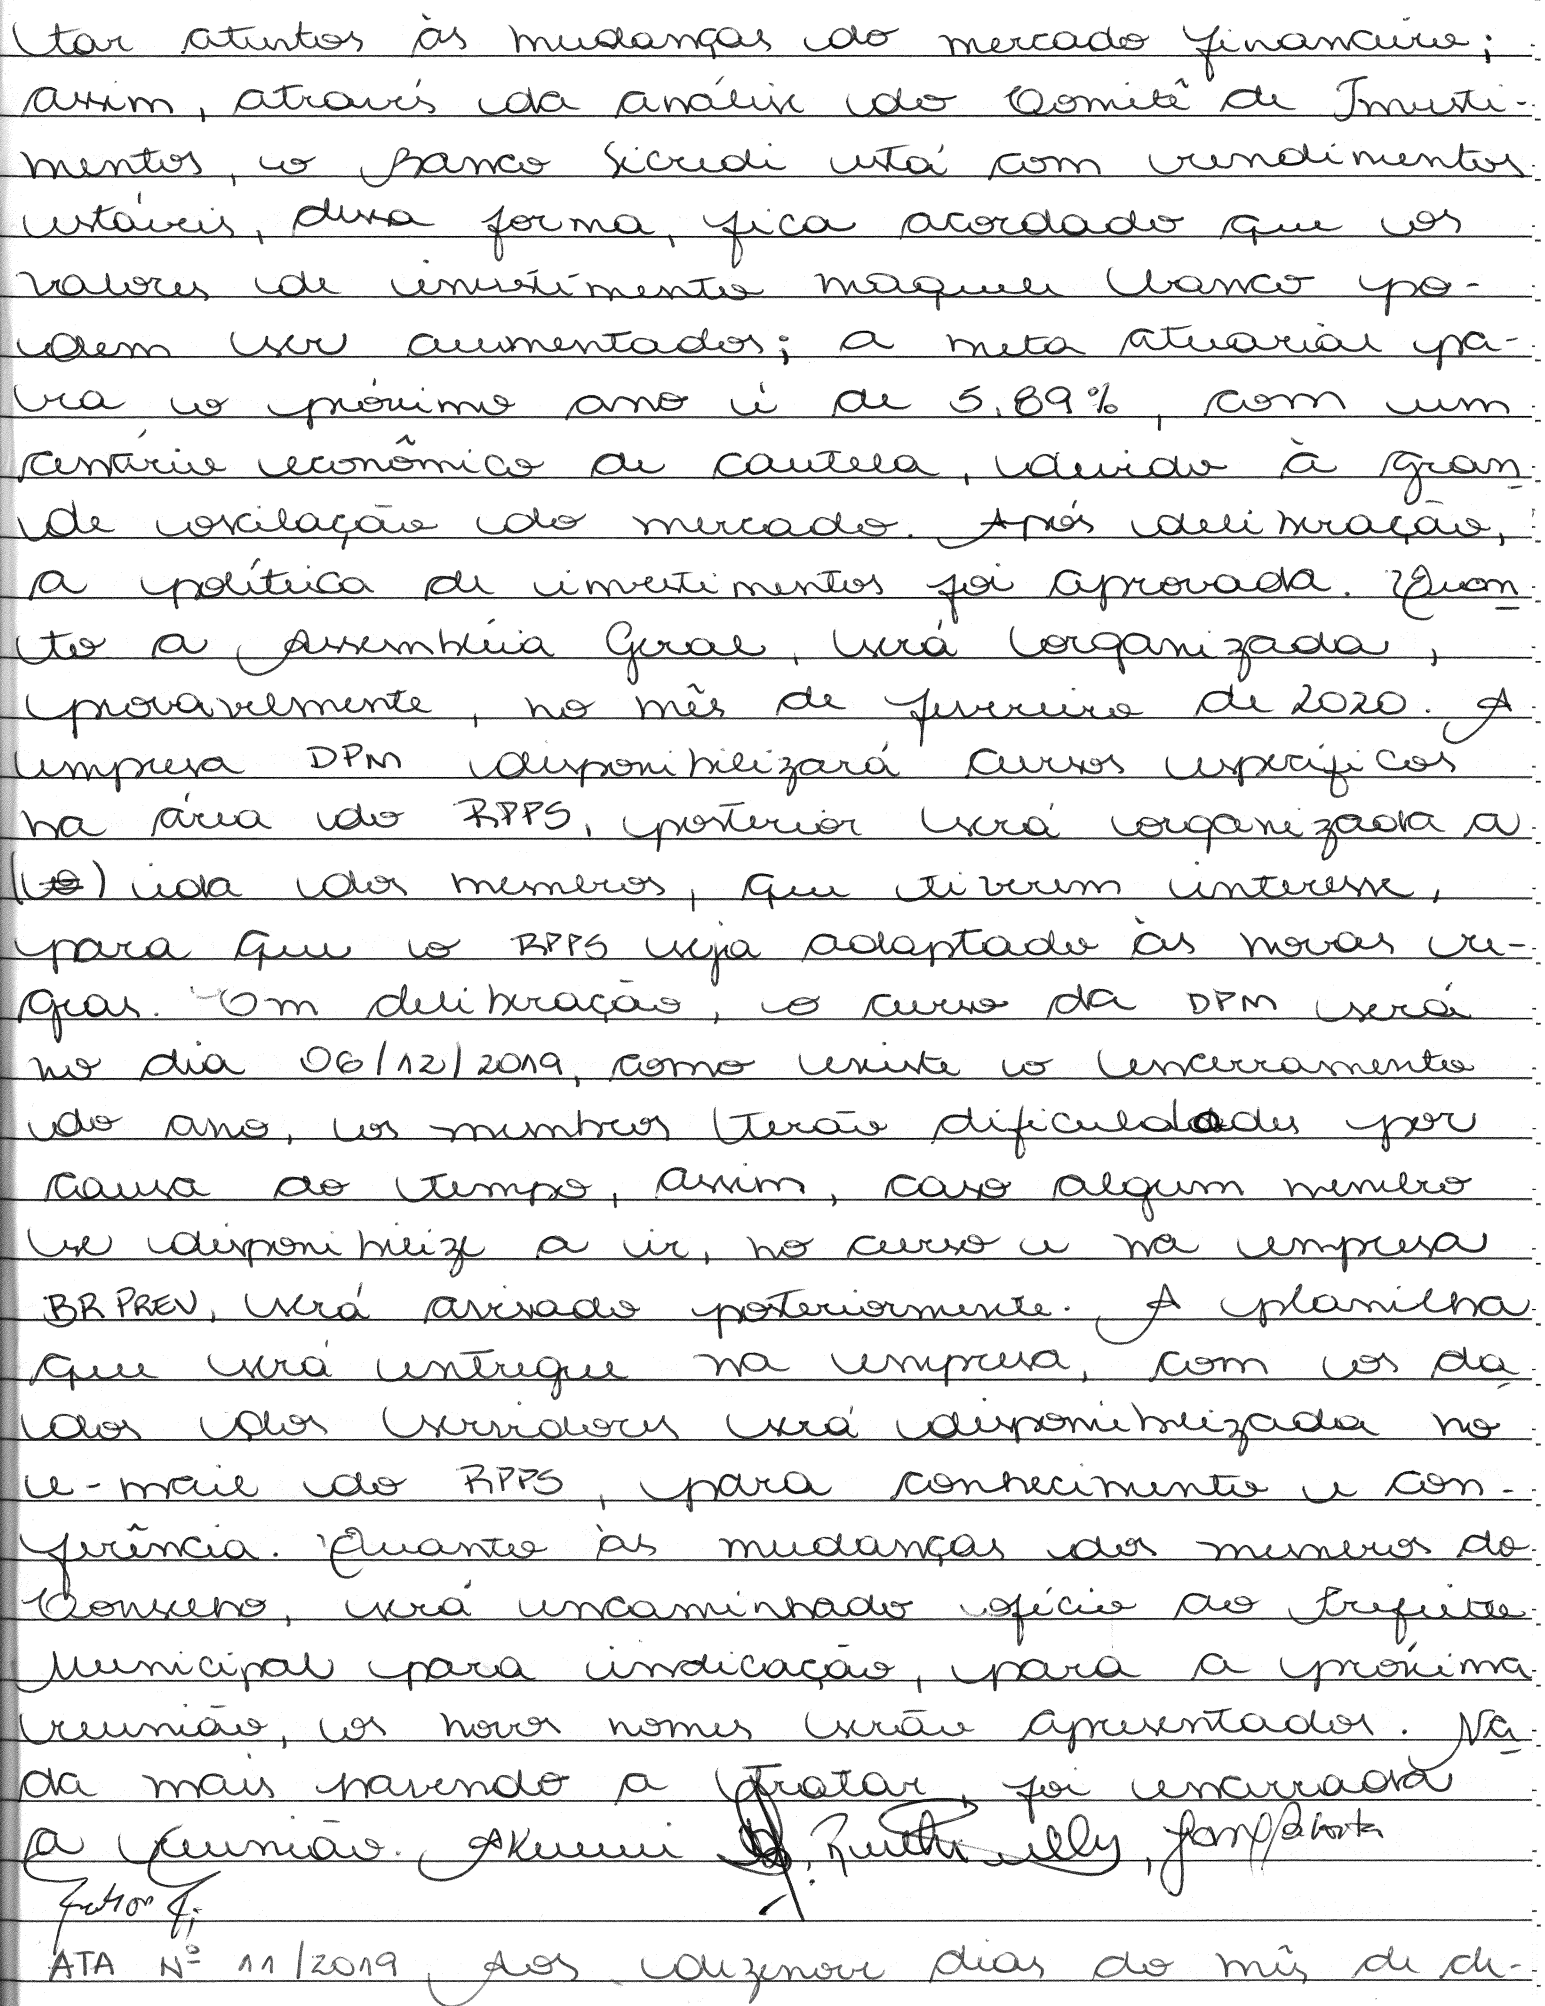 tar atentos às mudanças do mercado financeiro;
assim, através da análise do Comitê de Investi-
mentos, o Banco Sicredi está com rendimentos
estáveis, dessa forma, fica acordado que os
valores de investimento naquele banco po-
dem ser aumentados; a meta atuarial pa-
ra o próximo ano é de 5,89%, com um
cenário econômico de cautela, devido à gran
de oscilação do mercado. Após deliberação,
a política de investimentos foi aprovada. Quan
to a Assembléia Geral, será organizada,
provavelmente, no mês de fevereiro de 2020. A
empresa DPM disponibilizará cursos específicos
na área do RPPS, posterior será organizada a
(o) ida dos membros, que tiverem interesse,
para que o RPPS seja adaptado às novas re-
gras. Em deliberação, o curso da DPM será
no dia 06/12/2019, como existe o encerramento
do ano, os membros terão dificuldades por
causa do tempo, assim, caso algum membro
se disponibilize a ir, no curso e na empresa
BR PREV, será avisado posteriormente. A planilha
que será entregue na empresa, com os da
dos dos servidores será disponibilizada no
e-mail do RPPS, para conhecimento e con-
ferência. Quanto às mudanças dos membros do
Conselho, será encaminhado ofício ao Prefeito
Municipal para indicação, para a próxima
reunião, os novos nomes serão apresentados. Na
da mais havendo a tratar, foi encerrada
a reunião.
ATA Nº 11/2019 Aos dezenove dias do mês de de-